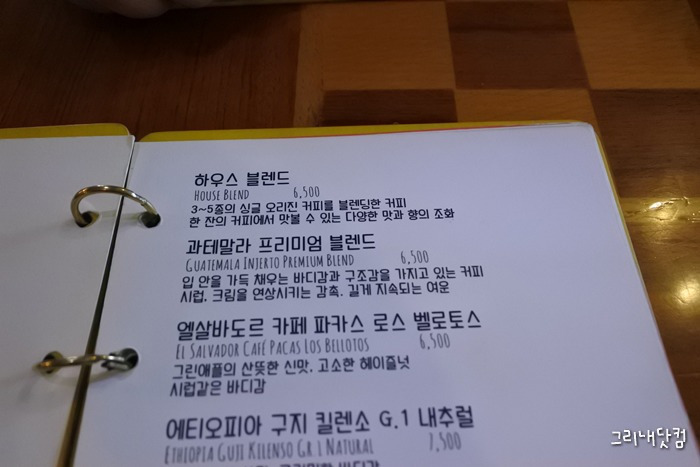 하우스 블렌드
HOUSE BLEND 6,500
3~5종의 싱글 오리진 커피를 블렌딩한 커피
한 잔의 커피에서 맛볼 수 있는 다양한 맛과 향의 조화
과테말라 프리미엄 블렌드
GUATEMALA INJERTO PREMIUM BLEND 6,500
입 안을 가득 채우는 바디감과 구조감을 가지고 있는 커피
시럽, 크림을 연상시키는 감촉. 길게 지속되는 여운
엘살바도르 카페 파카스 로스 벨로토스
EL SALVADOR CAFÉ PACAS LOS BELLOTOS 6,500
그린애플의 산뜻한 신맛. 고소한 헤이즐넛
시럽같은 바디감
에티오피아 구지 킬렌소 G.1 내추럴
ETHIOPIA GUJI KILENSO GR 1 NATURAL 7,500
그리내닷컴